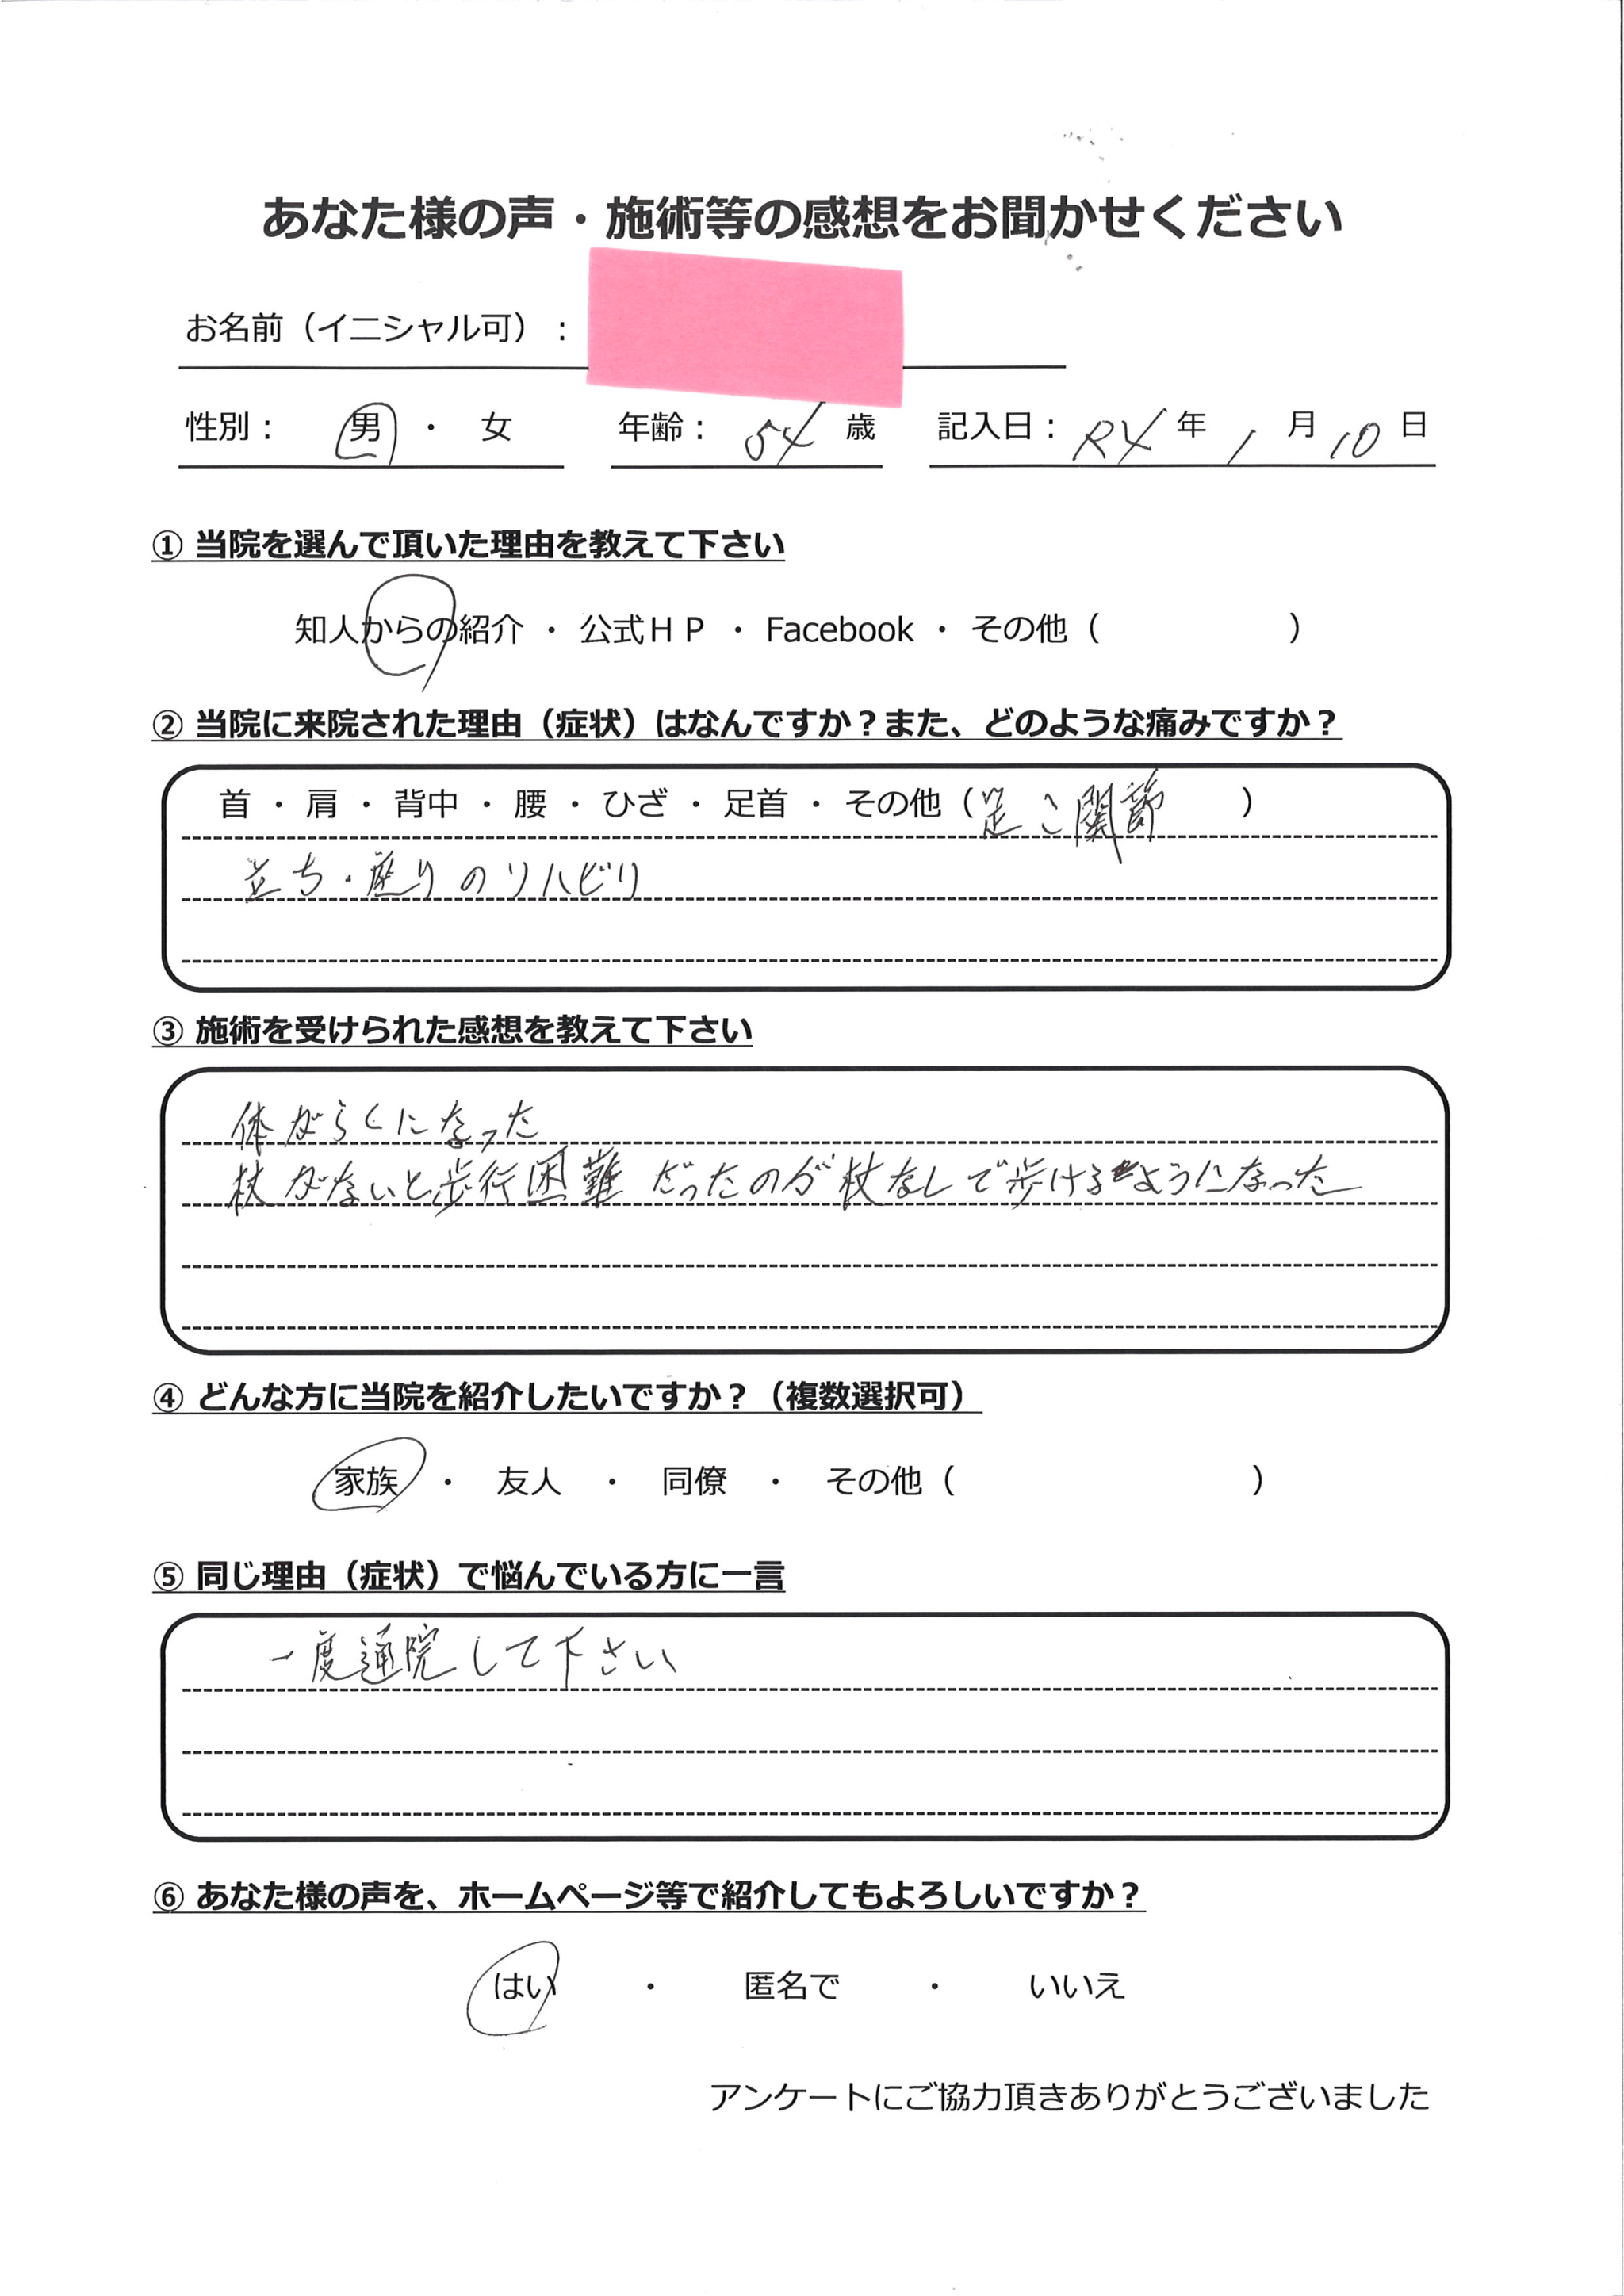 あなた様の声・施術等の感想をお聞かせください
お名前（イニシャル可）：
性別： 男 ・ 女 年齢： 54 歳 記入日： R4 年 1 月 10 日
① 当院を選んで頂いた理由を教えて下さい
知人からの紹介 ・ 公式ＨＰ ・ Facebook ・ その他（ ）
② 当院に来院された理由（症状）はなんですか？また、どのような痛みですか？
首 ・ 肩 ・ 背中 ・ 腰 ・ ひざ ・ 足首 ・ その他（足こ関節 ）
立ち・座りのリハビリ
③ 施術を受けられた感想を教えて下さい
体がらくになった
杖がないと歩行困難だったのが杖なしで歩けるようになった
④ どんな方に当院を紹介したいですか？（複数選択可）
家族 ・ 友人 ・ 同僚 ・ その他（ ）
⑤ 同じ理由（症状）で悩んでいる方に一言
一度通院して下さい
⑥ あなた様の声を、ホームページ等で紹介してもよろしいですか？
はい ・ 匿名で ・ いいえ
アンケートにご協力頂きありがとうございました